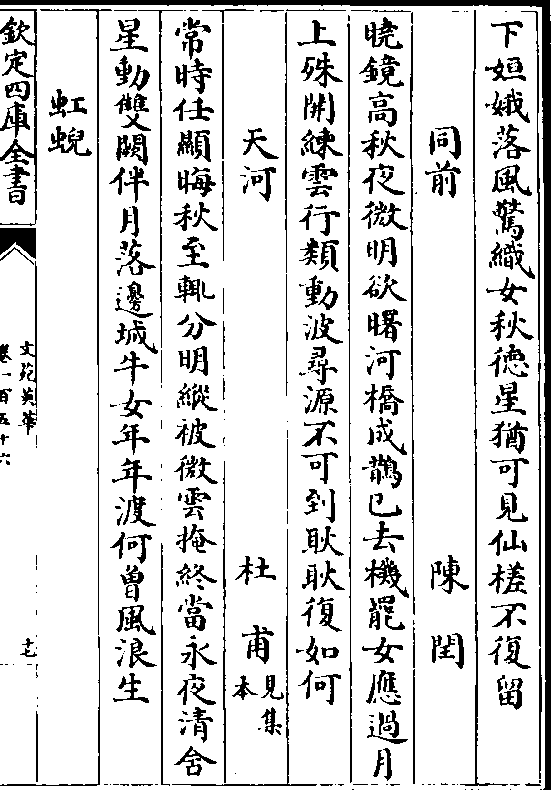 下姮娥落風驚織女秋德星猶可見仙槎不復留
同前　陳閏
曉鏡高秋夜微明欲曙河橋成鵲已去機罷女應過月
上殊開練雲行類動波尋源不可到耿耿復如何
天河　杜甫見集本
常時任顯晦秋至輒分明縱被微雲掩終當永夜清舍
星動雙闕伴月落邊城牛女年年渡何曽風浪生
虹蜺
欽定四庫全書
文苑英華
卷一百五十六